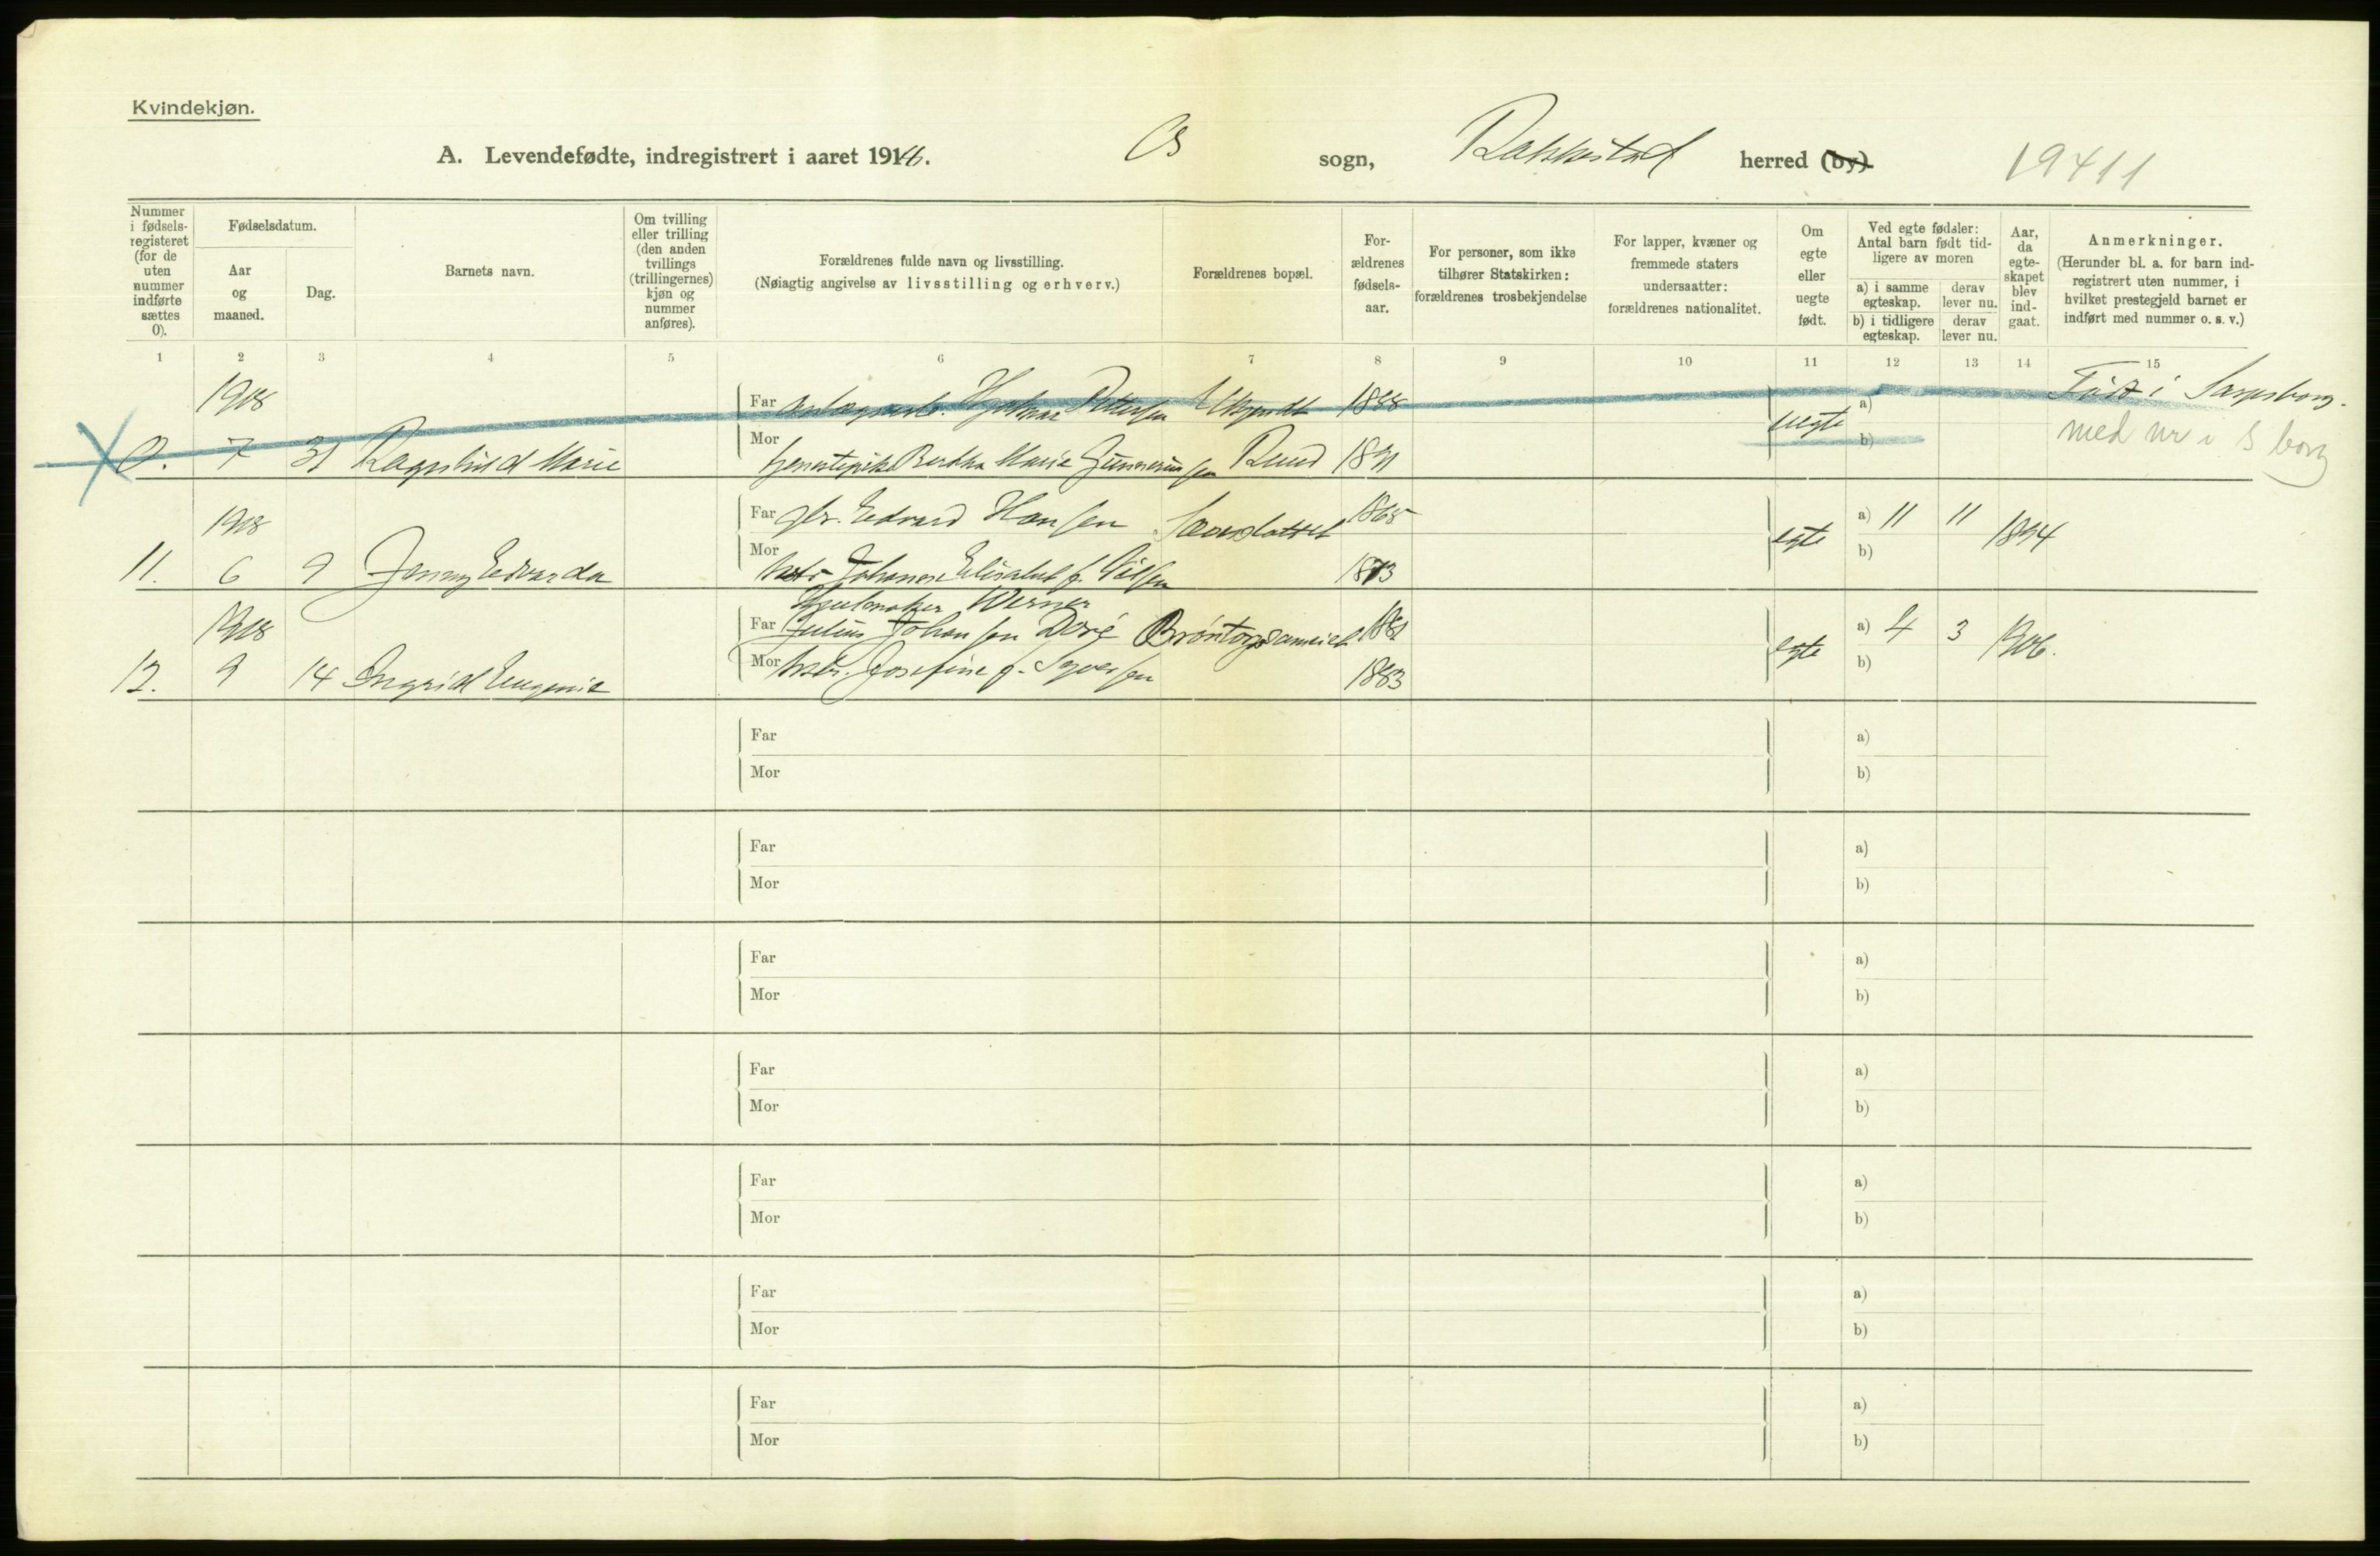 Kvindekjøn.
A. Levendefødte, indregistrert i aaret 191
Os sogn, Rakkestad herred (by).
19411
Nummer i fødselsregisteret (for de uten nummer indførte sættes 0).
Fødselsdatum.
Aar og maaned.
Dag.
Barnets navn.
Om tvilling eller trilling (den anden tvillings (trillingernes) kjøn og nummer anføres).
Forældrenes fulde navn og livsstilling.
(Nøiagtig angivelse av livsstilling og erhverv.)
Forældrenes bopæl.
Forældrenes fødselsaar.
For personer, som ikke tilhører Statskirken: forældrenes trosbekjendelse
For lapper, kvæner og fremmede staters undersaatter: forældrenes nationalitet.
Om egte eller uegte født.
Ved egte fødsler: Antal barn født tidligere av moren
a) i samme egteskap.
derav lever nu.
b) i tidligere egteskap.
derav lever nu.
Aar, da egteskapet blev indgaat.
Anmerkninger.
(Herunder bl. a. for barn indregistrert uten nummer, i hvilket prestegjeld barnet er indført med nummer o. s. v.)
1 2 3 4 5 6 7 8 9 10 11 12 13 14 15
1918 Far Hjalmar Pettersen 1888 a) Født i Sarpsborg.
0. 7 31 Ragnhild Marie Mor Bertha Marie Gunnerius Ruud 1891 uegte b) med nr i S borg
1918 Far Edvard Hansen 1865 a) 11 11 1894
11. 6 9 Jenny Edvarda Mor Johanne Elisabet f. 1873 egte b)
Hjulmaker Werner
1918 Far Julius Johansen a) 4 3 1906.
12. 9 14 Ingrid Eugenie Mor Josefine f. 1883 egte b)
Far a)
Mor b)
Far a)
Mor b)
Far a)
Mor b)
Far a)
Mor b)
Far a)
Mor b)
Far a)
Mor b)
Far a)
Mor b)